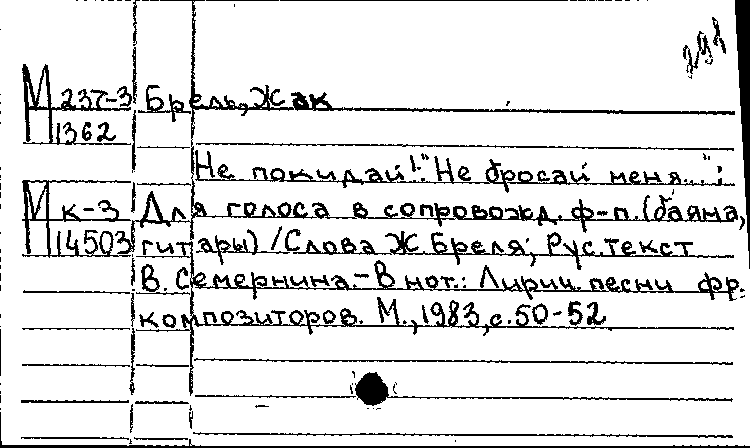 М 237-3 Брель, Жак
1362
Не покидай!: "Не бросай меня...":
М к-3 Для голоса в сопровожд. ф-п. (баяна,
14503 гитары) / Слова Ж. Бреля; Рус. текст
В. Семернина. - В нот.: Лирич. песни фр.
композиторов. М., 1983, с. 50-52